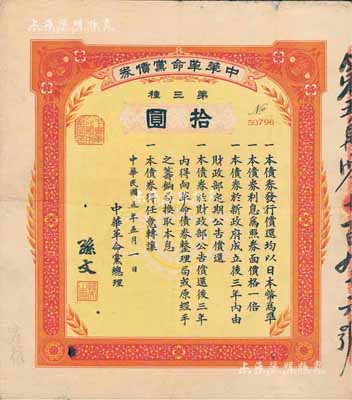 中華革命黨債券
第三種
拾圓
No
50796
一本債券發行償還均以日本幣爲準
一本債券利息爲照券面價格一倍
一本債券於新政府成立後三年內由
財政部定期公告償還
一本債券於財政部公告償還後三年
內得向革命債券整理局或原經手
之籌餉局換取本息
一本債券得任意轉讓
中華民國五年五月一日
中華革命黨總理
孫文